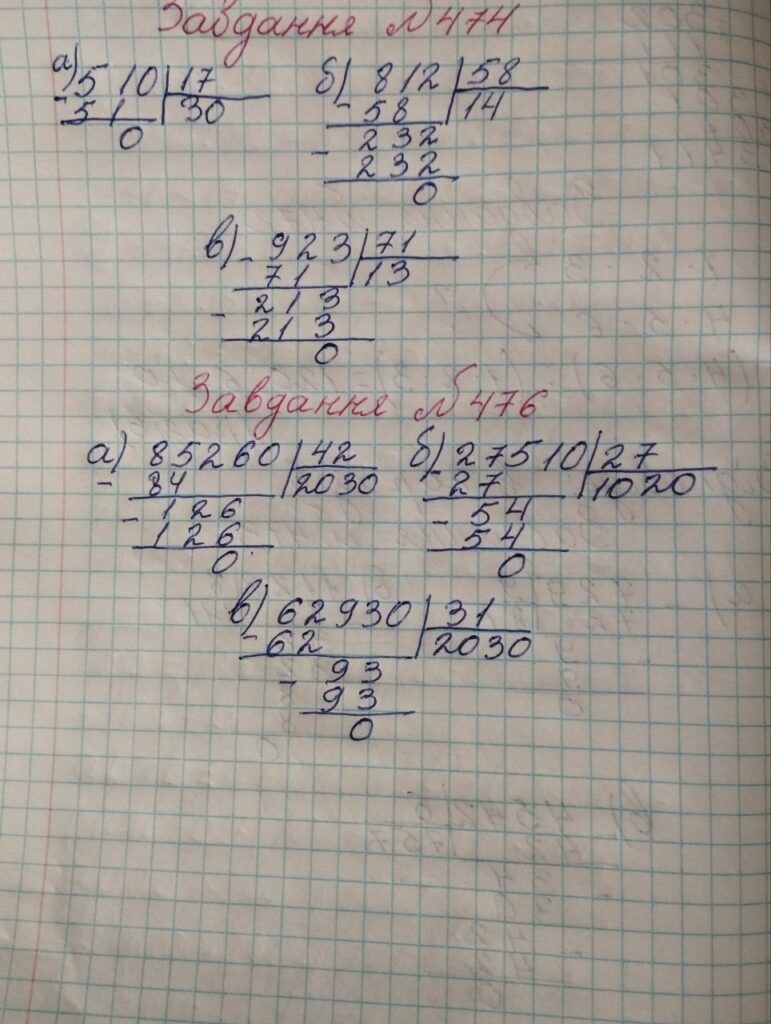 Завдання №474
а) 510 | 17
- 51 | 30
0
б) 812 | 58
- 58 | 14
- 232
232
0
в) - 923 | 71
71 | 13
- 213
213
0
Завдання №476
а) 85260 | 42
- 84 | 2030
- 126
126
0
б) - 27510 | 27
27 | 1020
- 54
54
0
в) 62930 | 31
- 62 | 2030
- 93
93
0